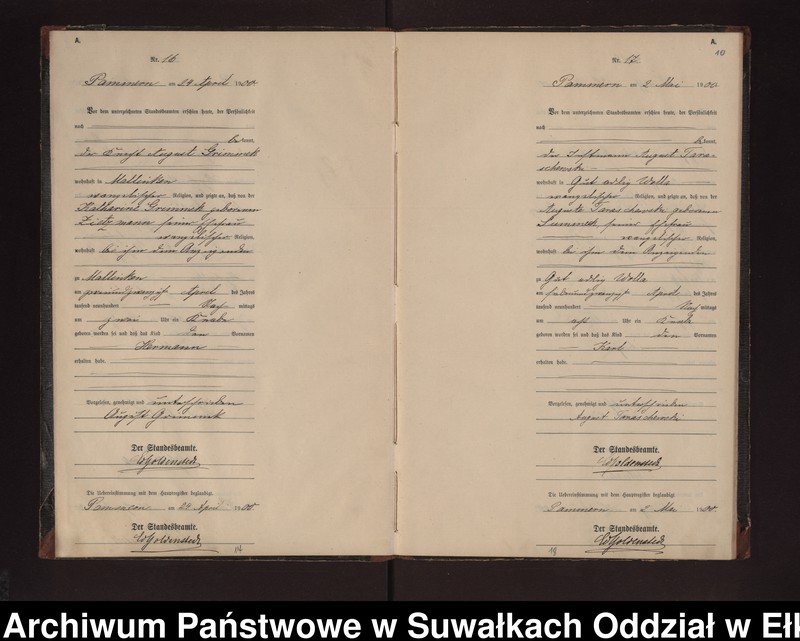 A.
Nr. 16
Pammern am 24 April 1900
Vor dem unterzeichneten Standesbeamten erschien heute, der Persönlichkeit
nach
bekannt,
der Knecht August Griment
wohnhaft in Mallinken
evangelischer Religion, und zeigte an, daß von der
Katharine geborenen
seiner Ehefrau
evangelischer Religion,
wohnhaft bei ihm dem Anzeigenden
zu Mallinken
am April des Jahres
tausend neunhundert Nachmittags
um zwei Uhr ein Knabe
geboren worden sei und daß das Kind den Vornamen
Hermann
erhalten habe.
Vorgelesen, genehmigt und unterschrieben
August
Der Standesbeamte.
Die Uebereinstimmung mit dem Hauptregister beglaubigt
am 24 April 1900
Der Standesbeamte.
14
A.
10
Nr. 17
Pammern am 2 Mai 1900
Vor dem unterzeichneten Standesbeamten erschien heute, der Persönlichkeit
nach
bekannt,
der Instmann August
wohnhaft in Gut adlig Wolla
evangelischer Religion, und zeigte an, daß von der
Auguste geborenen
seiner Ehefrau
evangelischer Religion,
wohnhaft bei ihm dem Anzeigenden
zu Gut adlig Wolla
am April des Jahres
tausend neunhundert Nachmittags
um acht Uhr ein Knabe
geboren worden sei und daß das Kind den Vornamen
Karl
erhalten habe.
Vorgelesen, genehmigt und unterschrieben
August
Der Standesbeamte.
Die Uebereinstimmung mit dem Hauptregister beglaubigt
Pammern am 2 Mai 1900
Der Standesbeamte.
18
Archiwum Państwowe w Suwałkach Oddział w Eł